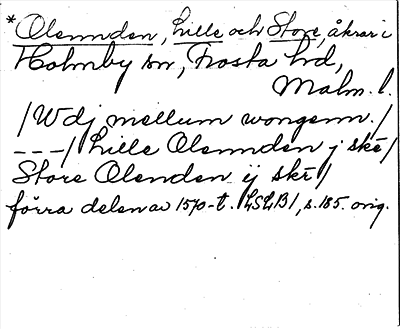 *Olennden, Lille och Store, åkrar i
Holmby sn, Frosta hd,
Malm. l.
/Wdj mellum wongenn./
---/ Lille Olennden j ske/
Store Olenden ij ske/
förra delen av 1570-t. LSLB1, s. 185. orig.